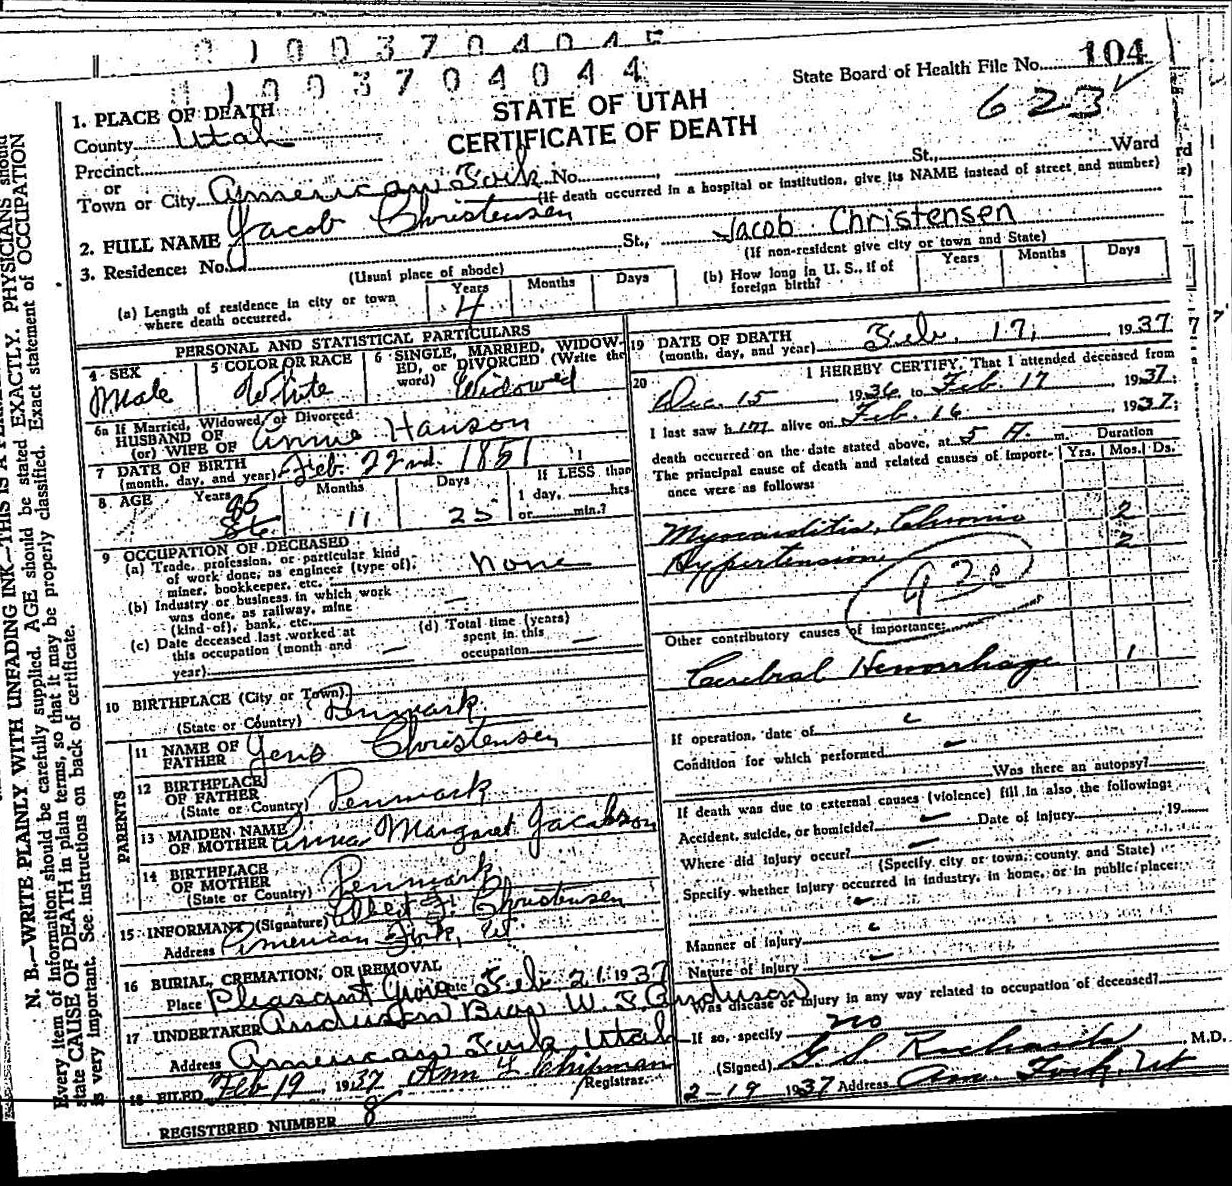 0 1 0 0 3 7 0 4 0 4 5
0 1 0 0 3 7 0 4 0 4 4
State Board of Health File No. 104
623
STATE OF UTAH
CERTIFICATE OF DEATH
1. PLACE OF DEATH
County Utah
Precinct
or
Town or City American Fork No. St., Ward
(If death occurred in a hospital or institution, give its NAME instead of street and number)
2. FULL NAME Jacob Christensen
Jacob Christensen
3. Residence: No. St.,
(Usual place of abode)
(If non-resident give city or town and State)
(a) Length of residence in city or town where death occurred. Years 4 Months Days
(b) How long in U. S., if of foreign birth? Years Months Days
PERSONAL AND STATISTICAL PARTICULARS
4 SEX Male
5 COLOR OR RACE White
6 SINGLE, MARRIED, WIDOWED, or DIVORCED (Write the word) Widowed
6a If Married, Widowed, or Divorced
HUSBAND OF
(or) WIFE OF Annie Hanson
7 DATE OF BIRTH
(month, day, and year) Feb. 22nd. 1851
8 AGE Years 85 Months 11 Days 25 If LESS than
1 day, hrs.
or min.?
9 OCCUPATION OF DECEASED
(a) Trade, profession, or particular kind of work done, as engineer (type of), miner, bookkeeper, etc. none
(b) Industry or business in which work was done, as railway, mine (kind of), bank, etc. —
(c) Date deceased last worked at this occupation (month and year) —
(d) Total time (years) spent in this occupation —
10 BIRTHPLACE (City or Town)
(State or Country) Denmark
PARENTS
11 NAME OF FATHER Jens Christensen
12 BIRTHPLACE OF FATHER
(State or Country) Denmark
13 MAIDEN NAME OF MOTHER Anna Margaret Jacobson
14 BIRTHPLACE OF MOTHER
(State or Country) Denmark
15 INFORMANT (Signature) Albert F. Christensen
Address American Fork, Ut
16 BURIAL, CREMATION, OR REMOVAL
Place Pleasant Grove Date Feb 21 1937
17 UNDERTAKER Anderson Bros W. S. Anderson
Address American Fork, Utah
18 FILED Feb 19, 1937 Ann L Chipman
Registrar.
REGISTERED NUMBER 8
19 DATE OF DEATH
(month, day, and year) Feb. 17, 1937
20 I HEREBY CERTIFY, That I attended deceased from
Dec. 15 1936 to Feb 17 1937;
I last saw him alive on Feb. 16 1937;
death occurred on the date stated above, at 5 A. m.
The principal cause of death and related causes of importance were as follows:
Duration
Yrs. Mos. Ds.
Myocarditis, Chronic 2
Hypertension 2
930
Other contributory causes of importance:
Cerebral Hemorrhage 1
If operation, date of
Condition for which performed —
Was there an autopsy?
If death was due to external causes (violence) fill in also the following:
Accident, suicide, or homicide? — Date of injury 19
Where did injury occur? —
(Specify city or town, county, and State)
Specify whether injury occurred in industry, in home, or in public place:
Manner of injury
Nature of injury —
Was disease or injury in any way related to occupation of deceased?
If so, specify no
(Signed) G. S. Richards, M.D.
2-19 1937 Address Am. Fork, Ut
N. B.—WRITE PLAINLY WITH UNFADING INK—THIS IS A PERMANENT
Every item of information should be carefully supplied. AGE should be stated EXACTLY. PHYSICIANS should
state CAUSE OF DEATH in plain terms, so that it may be properly classified. Exact statement of OCCUPATION
is very important. See instructions on back of certificate.